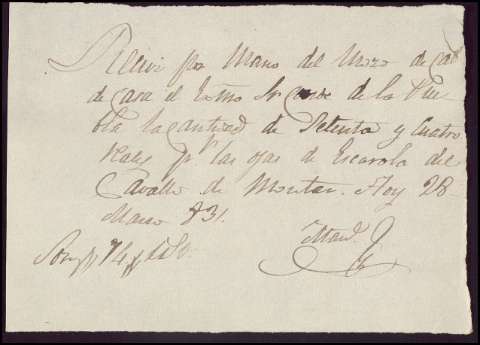 Recivi por Mano del Mozo de
de Casa el Exmo Sr Conde de la Pue-
bla la cantidad de Setenta y Cuatro
Rales pr las ojas de Escarola del
Cavallo de Montar. Hoy 28
Marzo 831.
Son 74